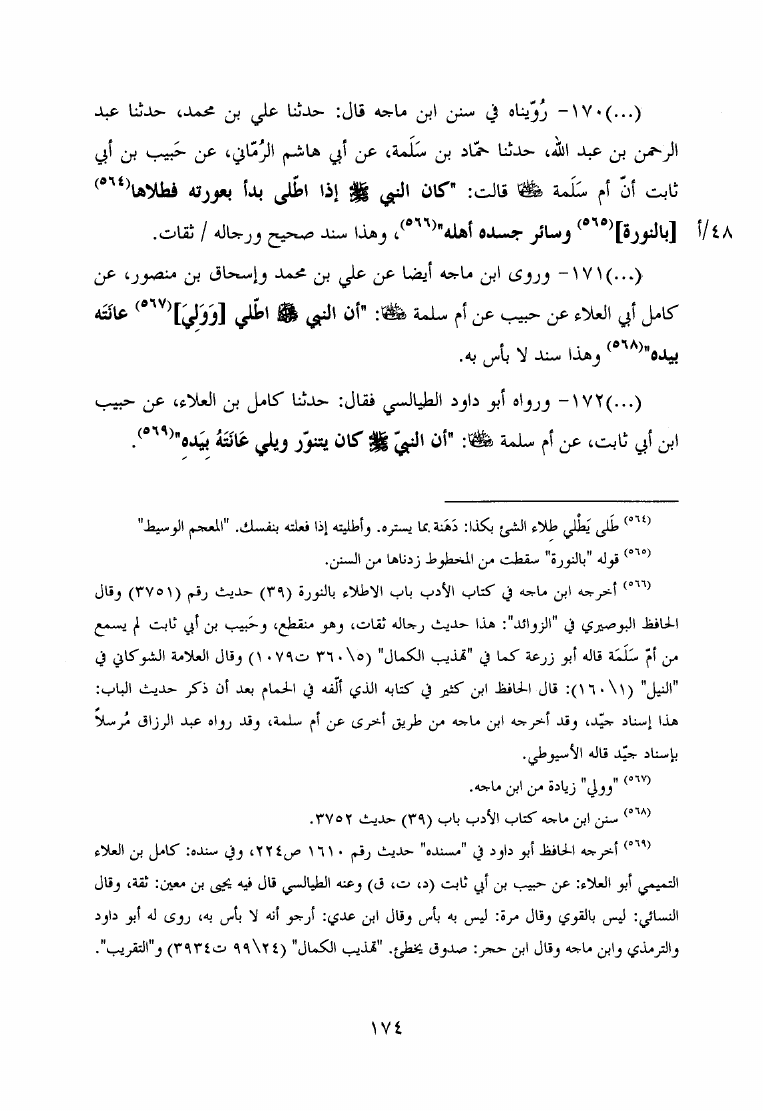 (...)١٧٠- رُوّيناه في سنن ابن ماجه قال: حدثنا علي بن محمد، حدثنا عبد
الرحمن بن عبد الله، حدثنا حمّاد بن سَلَمة، عن أبي هاشم الرُمّاني، عن حَبيب بن أبي
ثابت أنّ أم سَلَمة رضي الله عنها قالت: "كان النبي ﷺ إذا اطّلى بدأ بعورته فطلاها(٥٦٤)
[بالنورة](٥٦٥) وسائر جسده أهله"(٥٦٦)، وهذا سند صحيح ورجاله / ثقات. ٤٨/أ
(...)١٧١- وروى ابن ماجه أيضا عن علي بن محمد وإسحاق بن منصور، عن
كامل أبي العلاء عن حبيب عن أم سلمة رضي الله عنها: "أن النبي ﷺ اطّلي [وَوَلِيَ](٥٦٧) عانَتَه
بيده"(٥٦٨) وهذا سند لا بأس به.
(...)١٧٢- ورواه أبو داود الطيالسي فقال: حدثنا كامل بن العلاء، عن حبيب
ابن أبي ثابت، عن أم سلمة رضي الله عنها: "أن النبيّ ﷺ كان يتنوّر ويلي عَانَتَهُ بِيَدهِ"(٥٦٩).
(٥٦٤) طَلى يَطْلي طِلاء الشئ بكذا: دَهَنة بما يستره. وأطليته إذا فعلته بنفسك. "المعجم الوسيط"
(٥٦٥) قوله "بالنورة" سقطت من المخطوط زدناها من السنن.
(٥٦٦) أخرجه ابن ماجه في كتاب الأدب باب الاطلاء بالنورة (٣٩) حديث رقم (٣٧٥١) وقال
الحافظ البوصيري في "الزوائد": هذا حديث رجاله ثقات، وهو منقطع، وحَبيب بن أبي ثابت لم يسمع
من أمّ سَلَمَة قاله أبو زرعة كما في "تهذيب الكمال" (٥\٣٦٠ ت١٠٧٩) وقال العلامة الشوكاني في
"النيل" (١\١٦٠): قال الحافظ ابن كثير في كتابه الذي ألّفه في الحمام بعد أن ذكر حديث الباب:
هذا إسناد جيّد، وقد أخرجه ابن ماجه من طريق أخرى عن أم سلمة، وقد رواه عبد الرزاق مُرسلاً
بإسناد جيّد قاله الأسيوطي.
(٥٦٧) "وولي" زيادة من ابن ماجه.
(٥٦٨) سنن ابن ماجه كتاب الأدب باب (٣٩) حديث ٣٧٥٢.
(٥٦٩) أخرجه الحافظ أبو داود في "مسنده" حديث رقم ١٦١٠ ص٢٢٤، وفي سنده: كامل بن العلاء
التميمي أبو العلاء: عن حبيب بن أبي ثابت (د، ت، ق) وعنه الطيالسي قال فيه يحيى بن معين: ثقة، وقال
النسائي: ليس بالقوي وقال مرة: ليس به بأس وقال ابن عدي: أرجو أنه لا بأس به، روى له أبو داود
والترمذي وابن ماجه وقال ابن حجر: صدوق يخطئ. "تهذيب الكمال" (٢٤\٩٩ ت٣٩٣٤) و"التقريب".
١٧٤